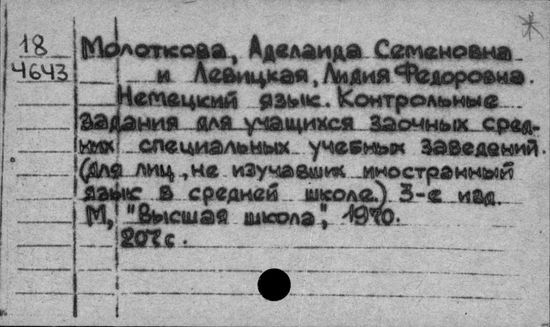 18
4643
Молоткова, Аделаида Семеновна
и Левицкая, Лидия Федоровна.
Немецкий язык. Контрольные
задания для учащихся заочных сред-
них специальных учебных заведений.
(для лиц, не изучавших иностранный
язык в средней школе.) 3-е изд.
М, "Высшая школа", 1970.
207с.